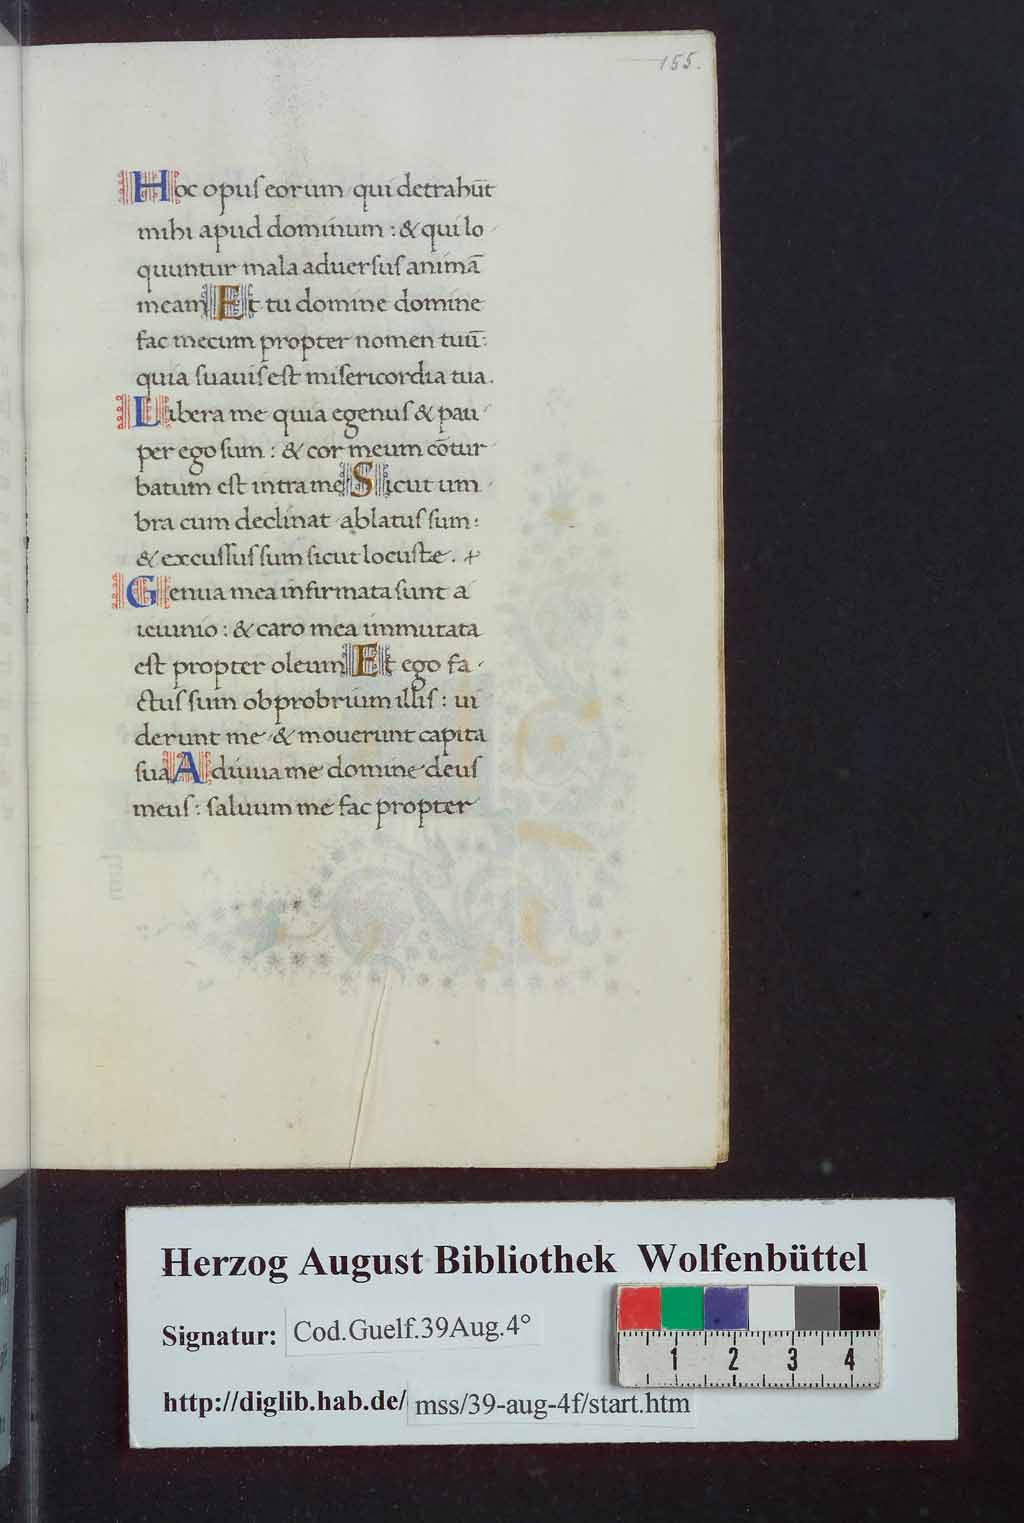 155.
Hoc opus eorum qui detrahūt
mihi apud dominum : & qui lo
quuntur mala aduersus animā
meam Et tu domine domine
fac mecum propter nomen tuū:
quia suauis est misericordia tua.
Libera me quia egenus & pau
per ego sum : & cor meum cōtur
batum est intra me Sicut um
bra cum declinat ablatus sum:
& excussus sum sicut locuste.
Genua mea infirmata sunt a
ieiunio : & caro mea immutata
est propter oleum Et ego fa
ctus sum obprobrium illis : ui
derunt me & mouerunt capita
sua Adiuua me domine deus
meus : saluum me fac propter
Herzog August Bibliothek Wolfenbüttel
Signatur: Cod.Guelf.39Aug.4°
1 2 3 4
http://diglib.hab.de/ mss/39-aug-4f/start.htm